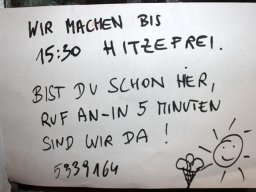 WIR MACHEN BIS
15:30 HITZEFREI.
BIST DU SCHON HIER,
RUF AN-IN 5 MINUTEN
SIND WIR DA !
5339164